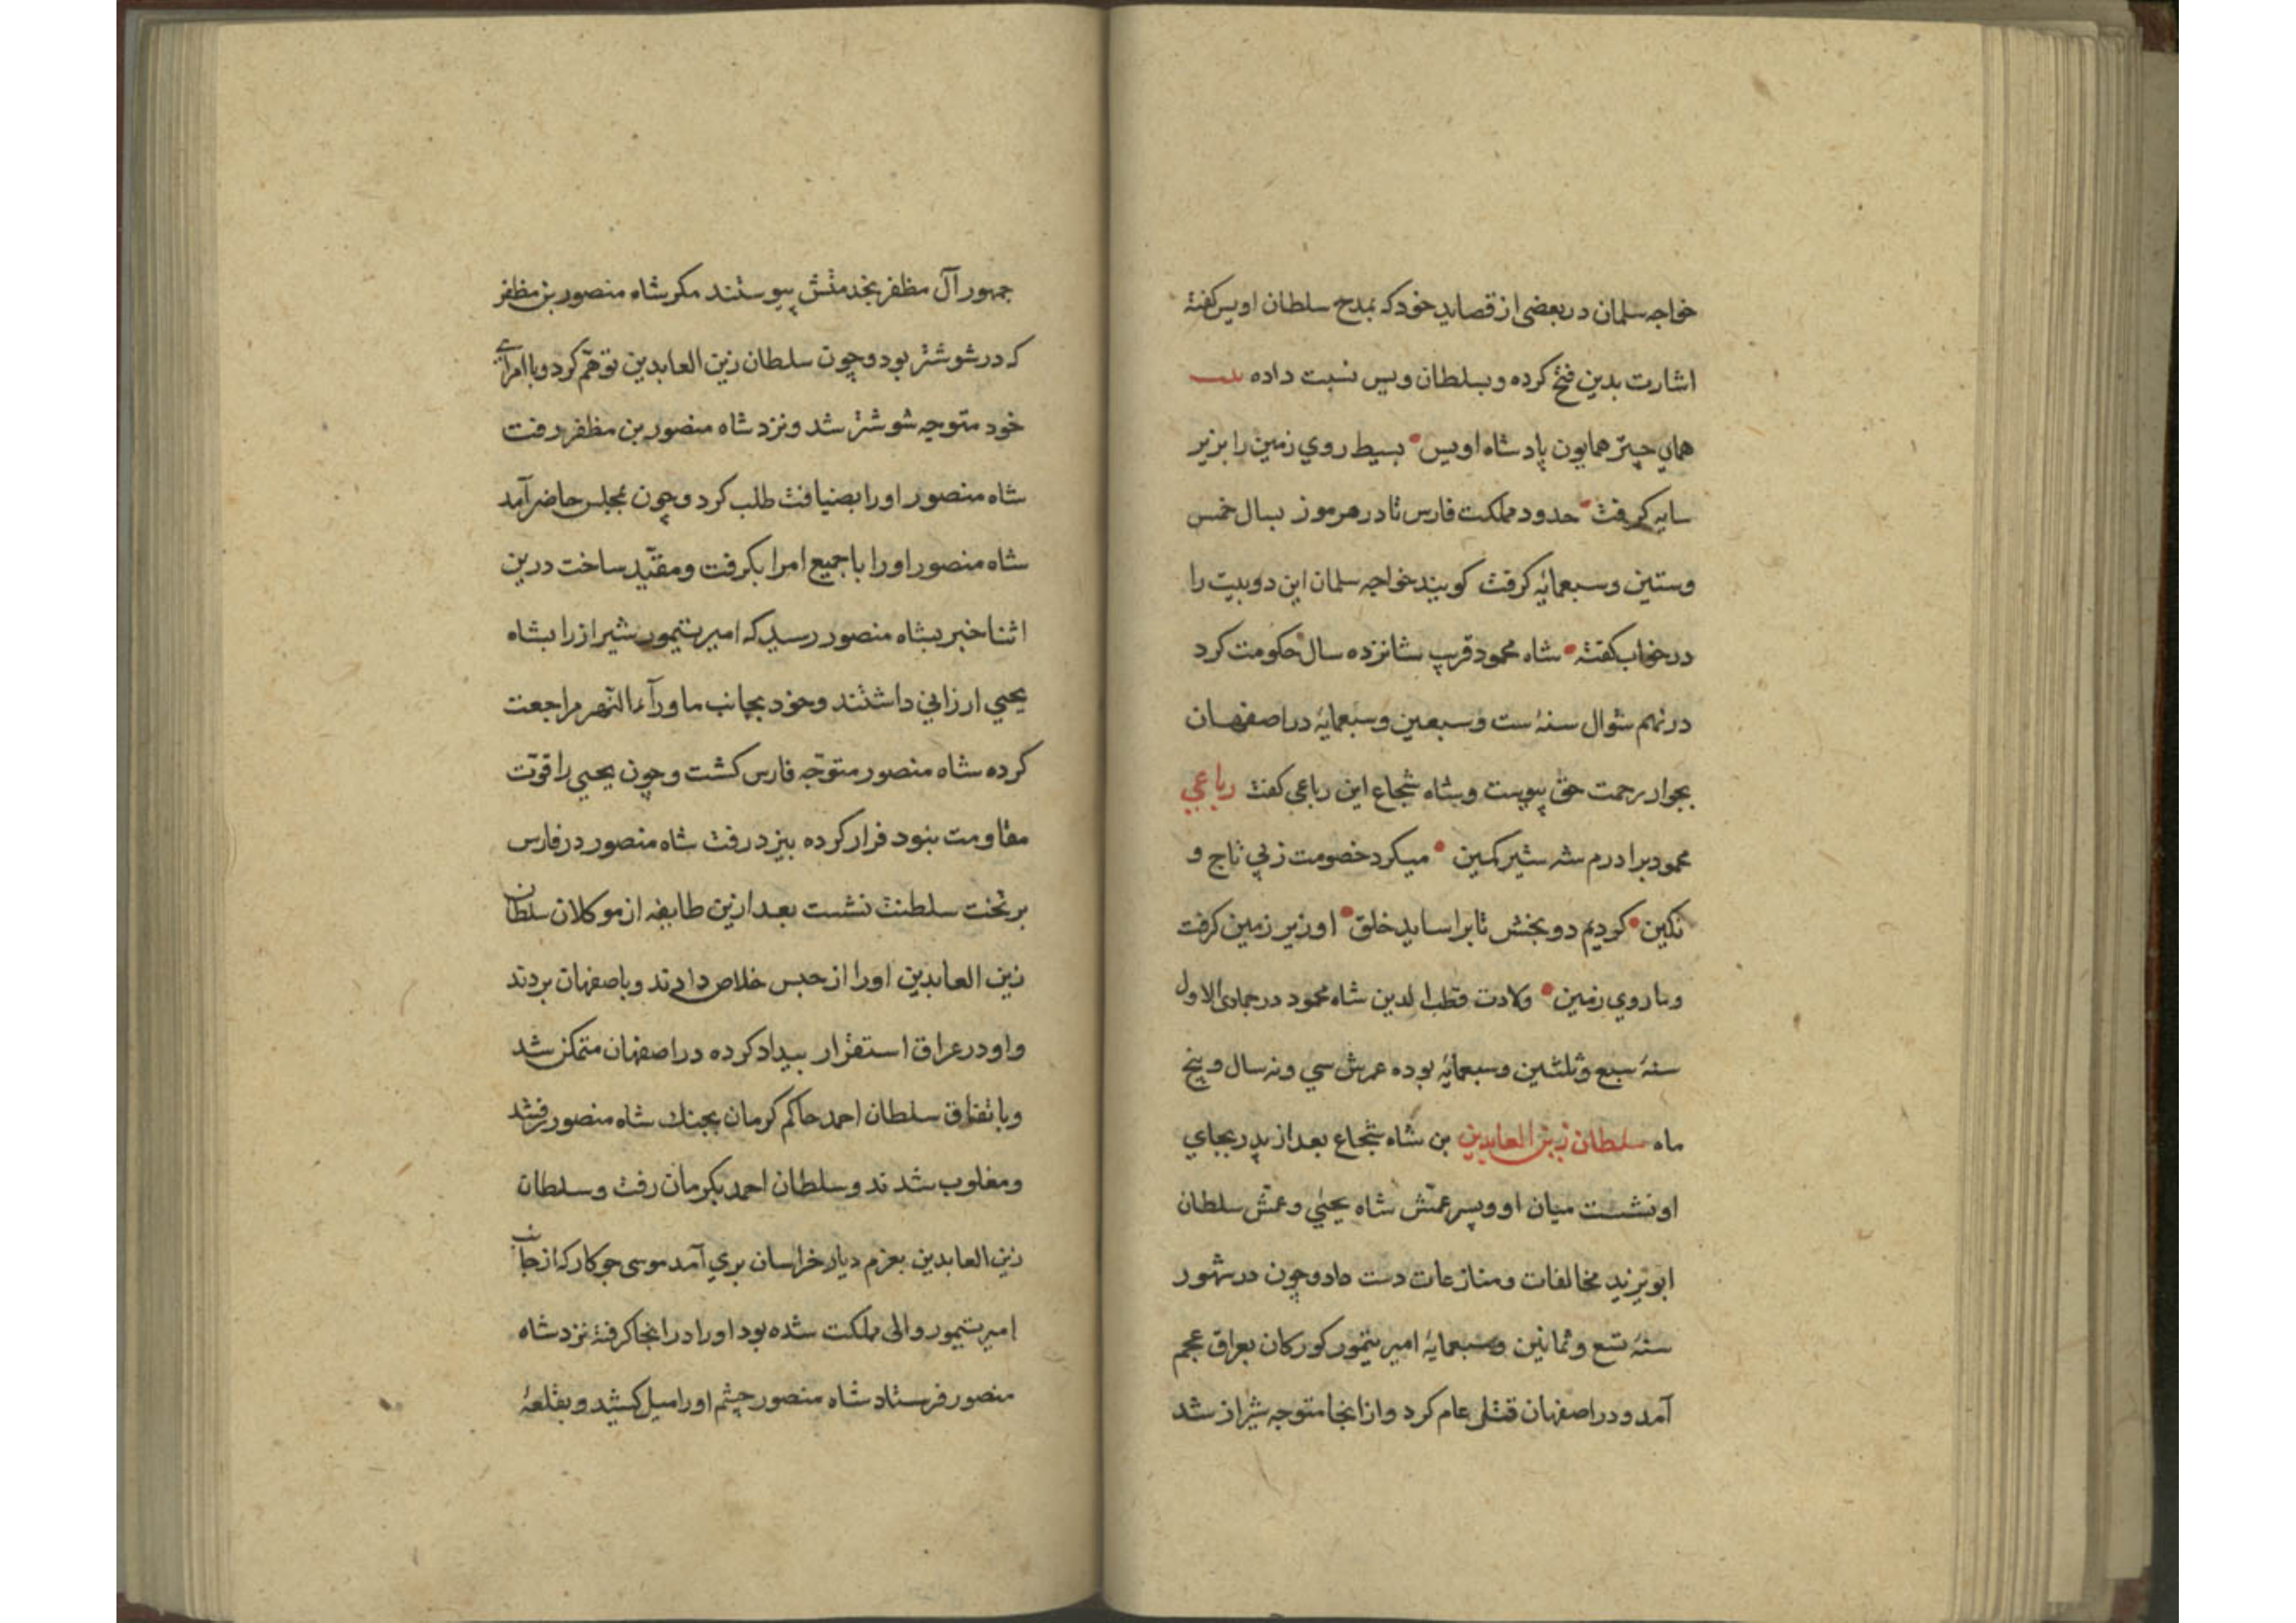 خواجه سلمان در بعضی از قصاید خود که بمدح سلطان اویس کفتهٔ
اشارت بدین فتح کرده و بسلطان ویس نسبت داده بیت
همای چتر همایون پادشاه اویس • بسیط روی زمین را بزیر
سایه کرفت • حدود مملکت فارس تا در هرموز بسال خمس
وستین وسبعمایه کرفت کویند خواجه سلمان این دوبیت را
در خواب کفته • شاه محمود قریب شانزده سال حکومت کرد
در نهم شوال سنهٔ ست وسبعین وسبعمایهٔ در اصفهان
بجوار رحمت حق پیوست وشاه شجاع این رباعی کفت رباعي
محمود برادرم شه شیر کمین • میکرد خصومت ز پی تاج و
نکین • کردیم دو بخش تا براساید خلق • او زیر زمین کرفت
وما روي زمین • ولادت قطب الدین شاه محمود در جمادی الاول
سنهٔ سبع وثلثین وسبعمایهٔ بوده عمرش سي ونه سال وپنج
ماه سلطان زین العابدین بن شاه شجاع بعد از پدر بجاي
او نشست میان او وپسر عمش شاه یحیي وعمش سلطان
ابو یزید مخالفات ومنازعات دست داد وچون در شهور
سنهٔ تسع وثمانین وسبعمایهٔ امیر تیمور کورکان بعراق عجم
آمد ودر اصفهان قتلی عام کرد واز انجا متوجه شیراز شد
جمهور آل مظفر بخدمتش پیوستند مکر شاه منصور بن مظفر
که در شوشتر بود وچون سلطان زین العابدین توهم کرد وبا امراي
خود متوجه شوشتر شد ونزد شاه منصور بن مظفر رفت
شاه منصور اورا بضیافت طلب کرد وچون بمجلس حاضر آمد
شاه منصور اورا با جمیع امرا بکرفت ومقید ساخت درین
اثنا خبر بشاه منصور رسید که امیر تیمور شیراز را بشاه
یحیي ارزاني داشتند وخود بجانب ماورآءالنهر مراجعت
کرده شاه منصور متوجه فارس کشت وچون یحیي را قوت
مقاومت نبود فرار کرده بیزد رفت شاه منصور در فارس
بر تخت سلطنت نشست بعد ازین طایفه از موکلان سلطان
زین العابدین اورا از حبس خلاص دادند وباصفهان بردند
واو در عراق استقرار بیداد کرده در اصفهان متمکن شد
وباتفاق سلطان احمد حاکم کرمان بجنك شاه منصور رفتند
ومغلوب شدند وسلطان احمد بکرمان رفت وسلطان
زین العابدین بعزم دیار خراسان بري آمد موسی جوکار که از جانب
امیر تیمور والی مملکت شده بود اورا در انجا کرفتهٔ نزد شاه
منصور فرستاد شاه منصور چشم اورا میل کشید وبقلعهٔ